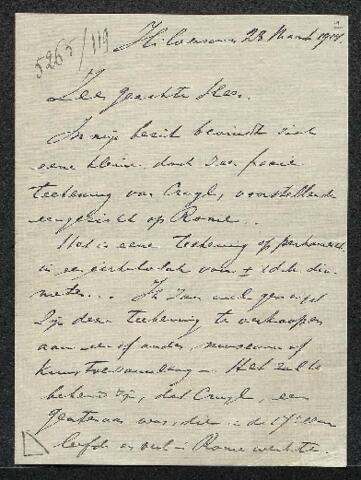 5265/119
Hilversum 23 Maart 1914.
Zeer geachte Heer.
In mijn bezit bevindt zich
eene kleine doch zeer fraaie
teekening van Cruyl, voorstellende
een gezicht op Rome...
Het is eene teekening op perkament
in
meter... Ik zou wel genegen
zijn deze teekening te verkoopen
aan een of ander museum of
kunstverzameling. Het zal U
bekend zijn, dat Cruyl, een
Gentenaar was, die in de 17e eeuw
leefde en veel in Rome werkte.